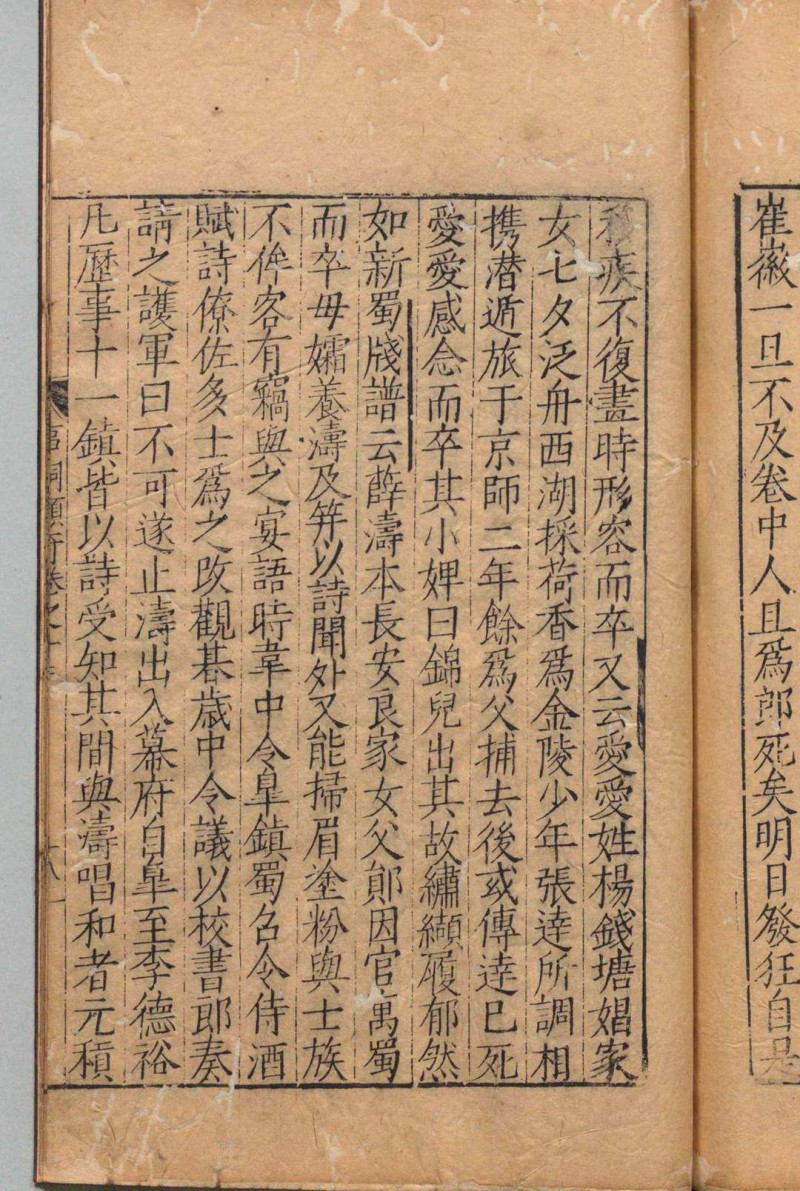 崔徽一旦不及卷中人且爲郎死矣明日發狂自是
稱疾不復晝時形容而卒又云愛愛姓楊錢塘娼家
女七夕泛舟西湖採荷香爲金陵少年張逵所調相
携潜遁旅于京師二年餘爲父捕去後或傳逵已死
愛愛感念而卒其小婢曰錦兒出其故繡纈履郁然
如新蜀牋譜云薛濤本長安良家女父鄖因官寓蜀
而卒母孀養濤及笄以詩聞外又能掃眉塗粉與士族
不侔客有竊與之宴語時韋中令臯鎮蜀名令侍酒
賦詩僚佐多士爲之改觀朞歲中令議以校書郎奏
請之護軍曰不可遂止濤出入幕府自臯至李德裕
凡歷事十一鎮皆以詩受知其間與濤唱和者元稹